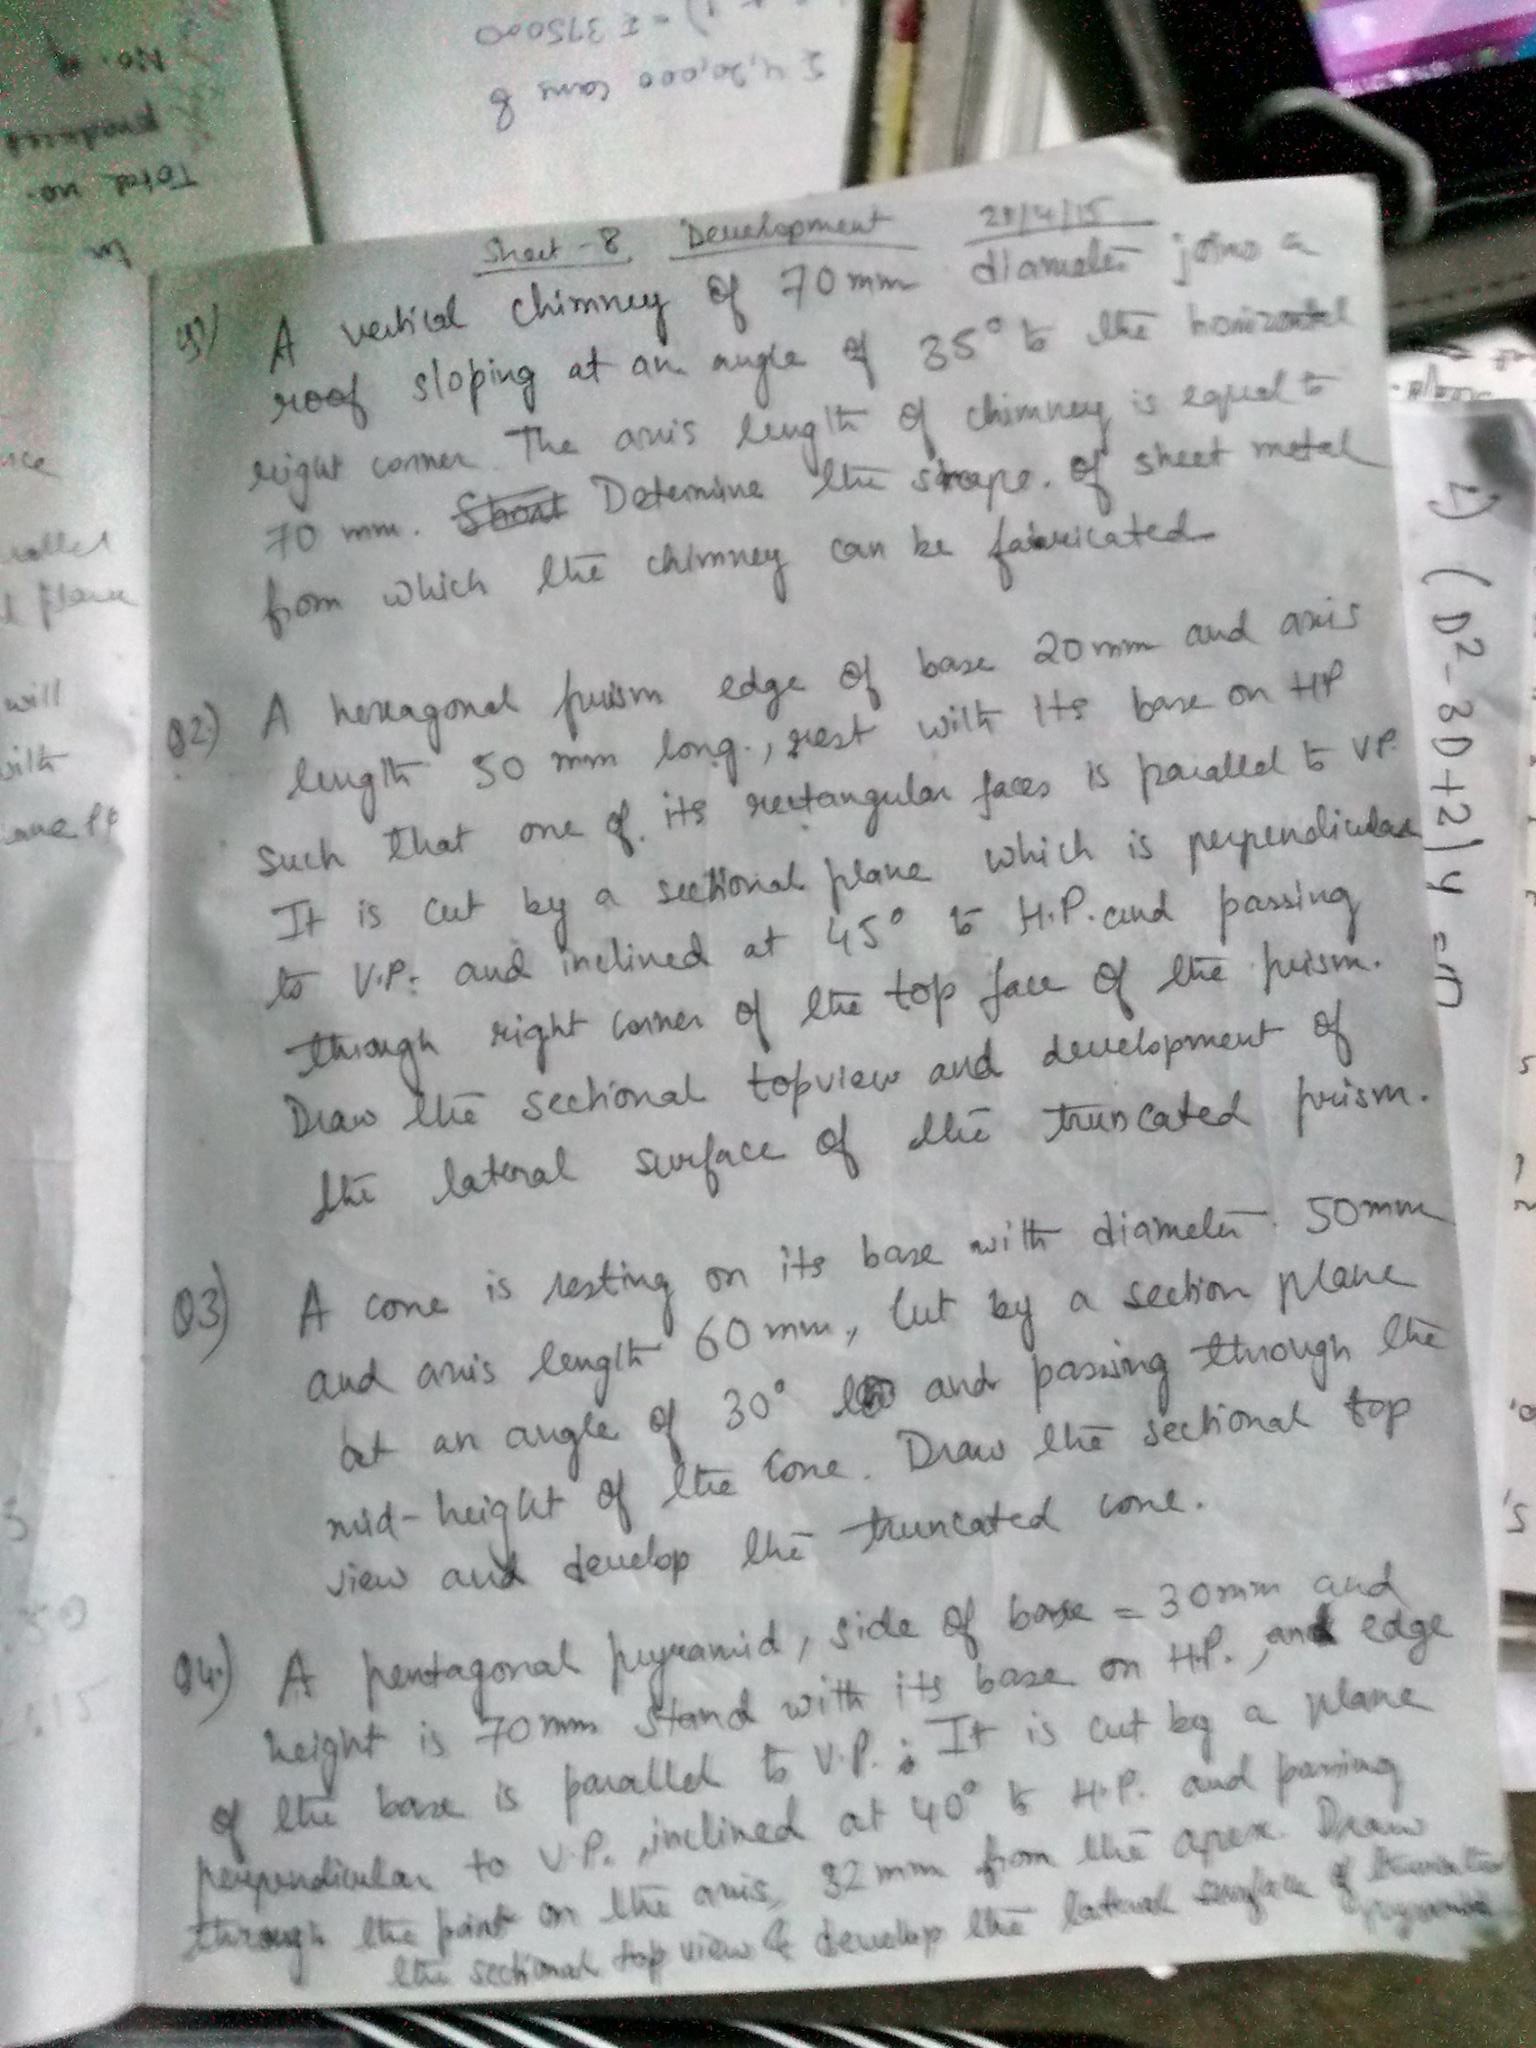 = I 375000
I 4,20,000 earns 8
No. of
produced
Total no.
In
Sheet - 8. Development 28/4/15
Q1) A vertical chimney of 70 mm diameter joins a
roof sloping at an angle of 35° to the horizontal
right corner. The axis length of chimney is equal to
70 mm. Determine the shape. of sheet metal
from which the chimney can be fabricated
Q2.) A hexagonal prism edge of base 20 mm and axis
length 50 mm long., rest with its base on HP
such that one of its rectangular faces is parallel to VP.
It is cut by a sectional plane which is perpendicular
to V.P. and inclined at 45° to H.P. and passing
through right corner of the top face of the prism.
Draw the sectional topview and development of
the lateral surface of the truncated prism.
Q3) A cone is resting on its base with diameter 50mm
and axis length 60 mm, cut by a section plane
at an angle of 30° and passing through the
mid-height of the cone. Draw the sectional top
view and develop the truncated cone.
Q4.) A pentagonal pyramid, side of base = 30 mm and
height is 70 mm stand with its base on H.P., and edge
of the base is parallel to V.P. It is cut by a plane
perpendicular to V.P., inclined at 40° to H.P. and passing
through the point on the axis, 32 mm from the apex. Draw
the sectional top view & develop the lateral surface of truncated
pyramid
plane
will
with
(D²-3D+2)y =